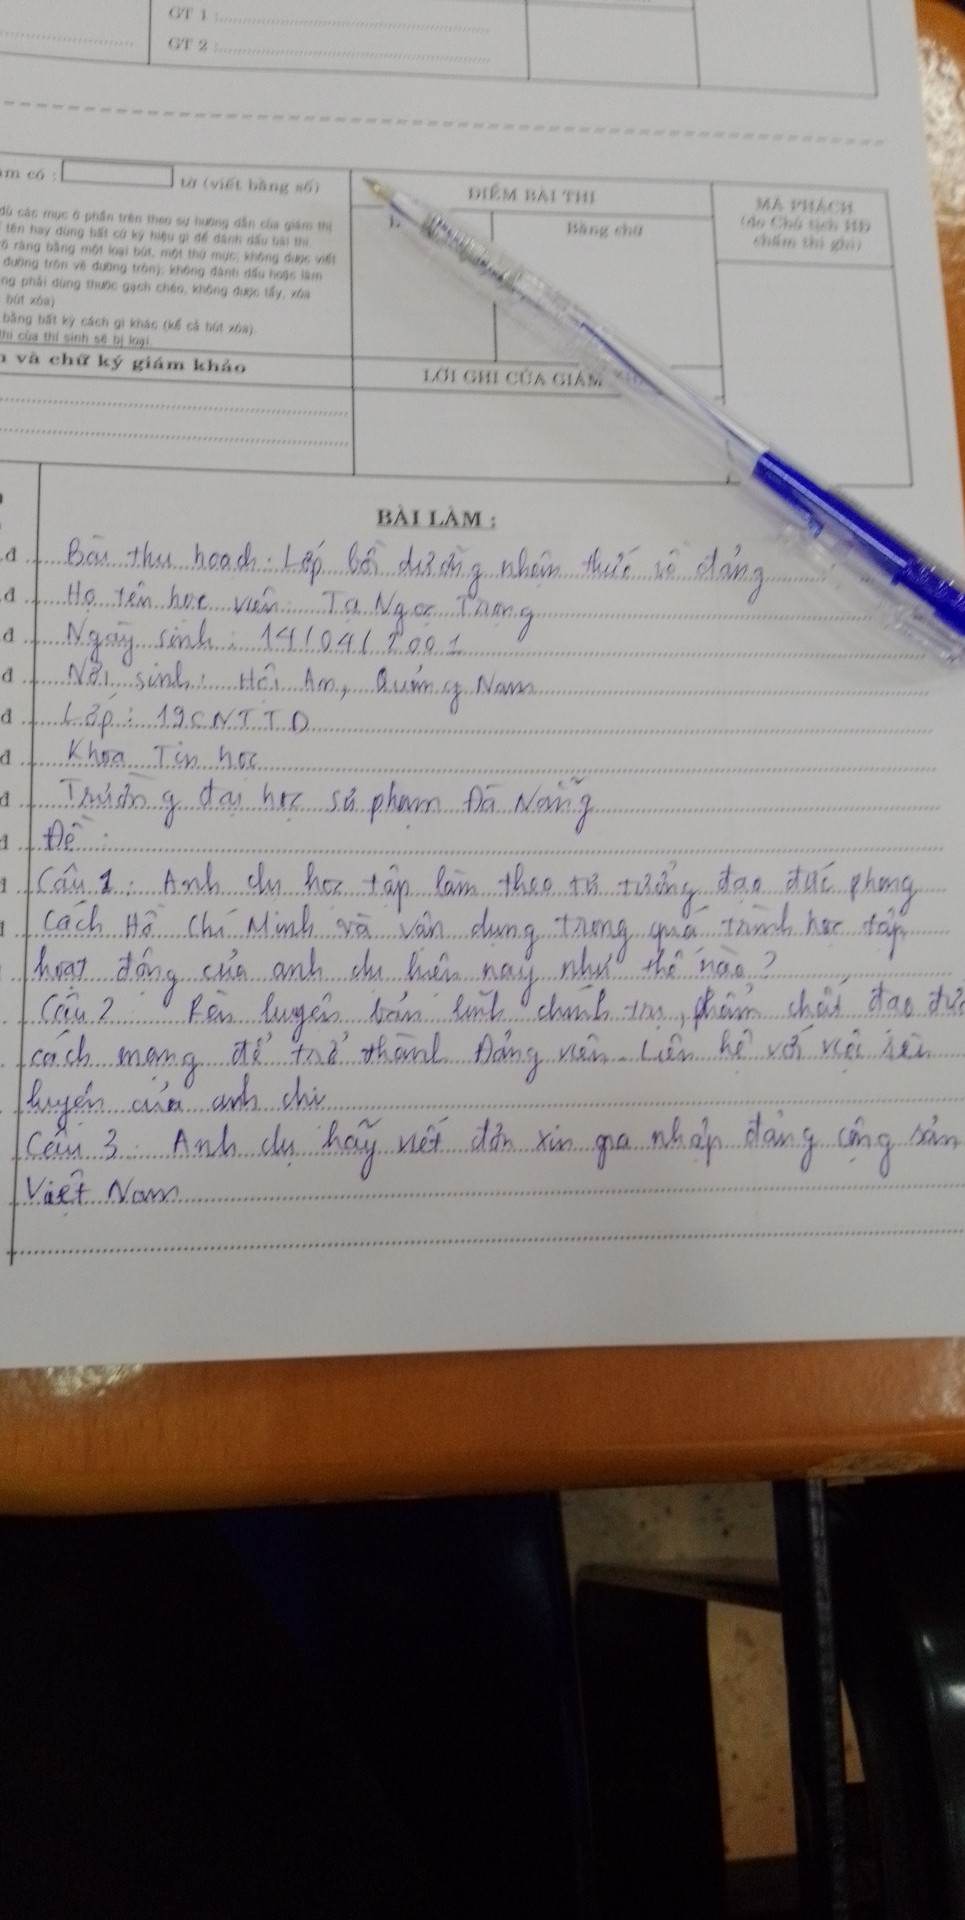 GT 1 :
GT 2 :
m có : tờ (viết bằng số)
ĐIỂM BÀI THI
MÃ PHÁCH
(do Chủ tịch HĐ
chấm thi ghi)
Bằng chữ
các mục ở phần trên theo sự hướng dẫn của giám thị
tên hay dùng bất cứ ký hiệu gì để đánh dấu bài thi
rõ ràng bằng một loại bút, một thứ mực; không được viết
đường tròn vẽ đường tròn); không đánh dấu hoặc làm
ng phải dùng thước gạch chéo, không được tẩy, xóa
bút xóa)
bằng bất kỳ cách gì khác (kể cả bút xóa).
thi của thí sinh sẽ bị loại
và chữ ký giám khảo
LỜI GHI CỦA GIÁM
BÀI LÀM :
Bài thu hoạch: Lớp bồi dưỡng nhận thức về đảng
Họ tên học viên: Tạ Ngọc Trung
Ngày sinh: 14/04/2001
Nơi sinh: Hội An, Quảng Nam
Lớp: 19CNTTD
Khoa Tin học
Trường đại học sư phạm Đà Nẵng
Đề:
Câu 1: Anh chị học tập làm theo tư tưởng đạo đức phong
cách Hồ Chí Minh và vận dụng trong quá trình học tập
hoạt động của anh chị hiện nay như thế nào?
Câu 2 Rèn luyện bản lĩnh chính trị, phẩm chất đạo đức
cách mạng để trở thành Đảng viên. Liên hệ với việc rèn
luyện của anh chị
Câu 3: Anh chị hãy viết đơn xin gia nhập đảng cộng sản
Việt Nam